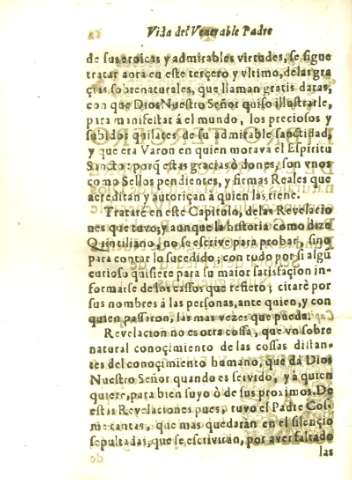 Vida del Venerable Padre
de sus eroicas y admirables virtudes, se sigue
tratar aora en este tercero y vltimo, de las gra
cias sobrenaturales, que llaman gratis datas,
con que Dios Nuestro Señor quiso illustrarle,
para manifestar á el mundo, los preciosos y
subidos quilates de su admirable sanctidad,
y que era Varon en quien morava el Espiritu
Sancto: porq̃ estas gracias ò dones, son vnos
como Sellos pendientes, y firmas Reales que
acreditan y autoriçan à quien las tiene.
Trataré en este Capitolo, de las Revelacio
nes que tuvo; y aunque la historia como dize
Quintiliano, no se escrive para probar, sino
para contar lo sucedido; con todo por si algũ
curioso quisiere para su maior satisfaçion in-
formarse de los cassos que refiero; citarè por
sus nombres á las personas, ante quien, y con
quien passaron, las mas vezes que pueda.
Revelacion no es otra cossa, que vn sobre
natural conoçimiento de las cossas distan-
tes del conocimiento humano, que dà Dios
Nuestro Señor quando es servido, y à quien
quiere, para bien suyo ò de sus proximos. De
estas Revelaciones pues, tuvo el Padre Cos
me tantas, que mas quedarán en el silencio
sepultadas, que se escrivirán, por aver faltado
las